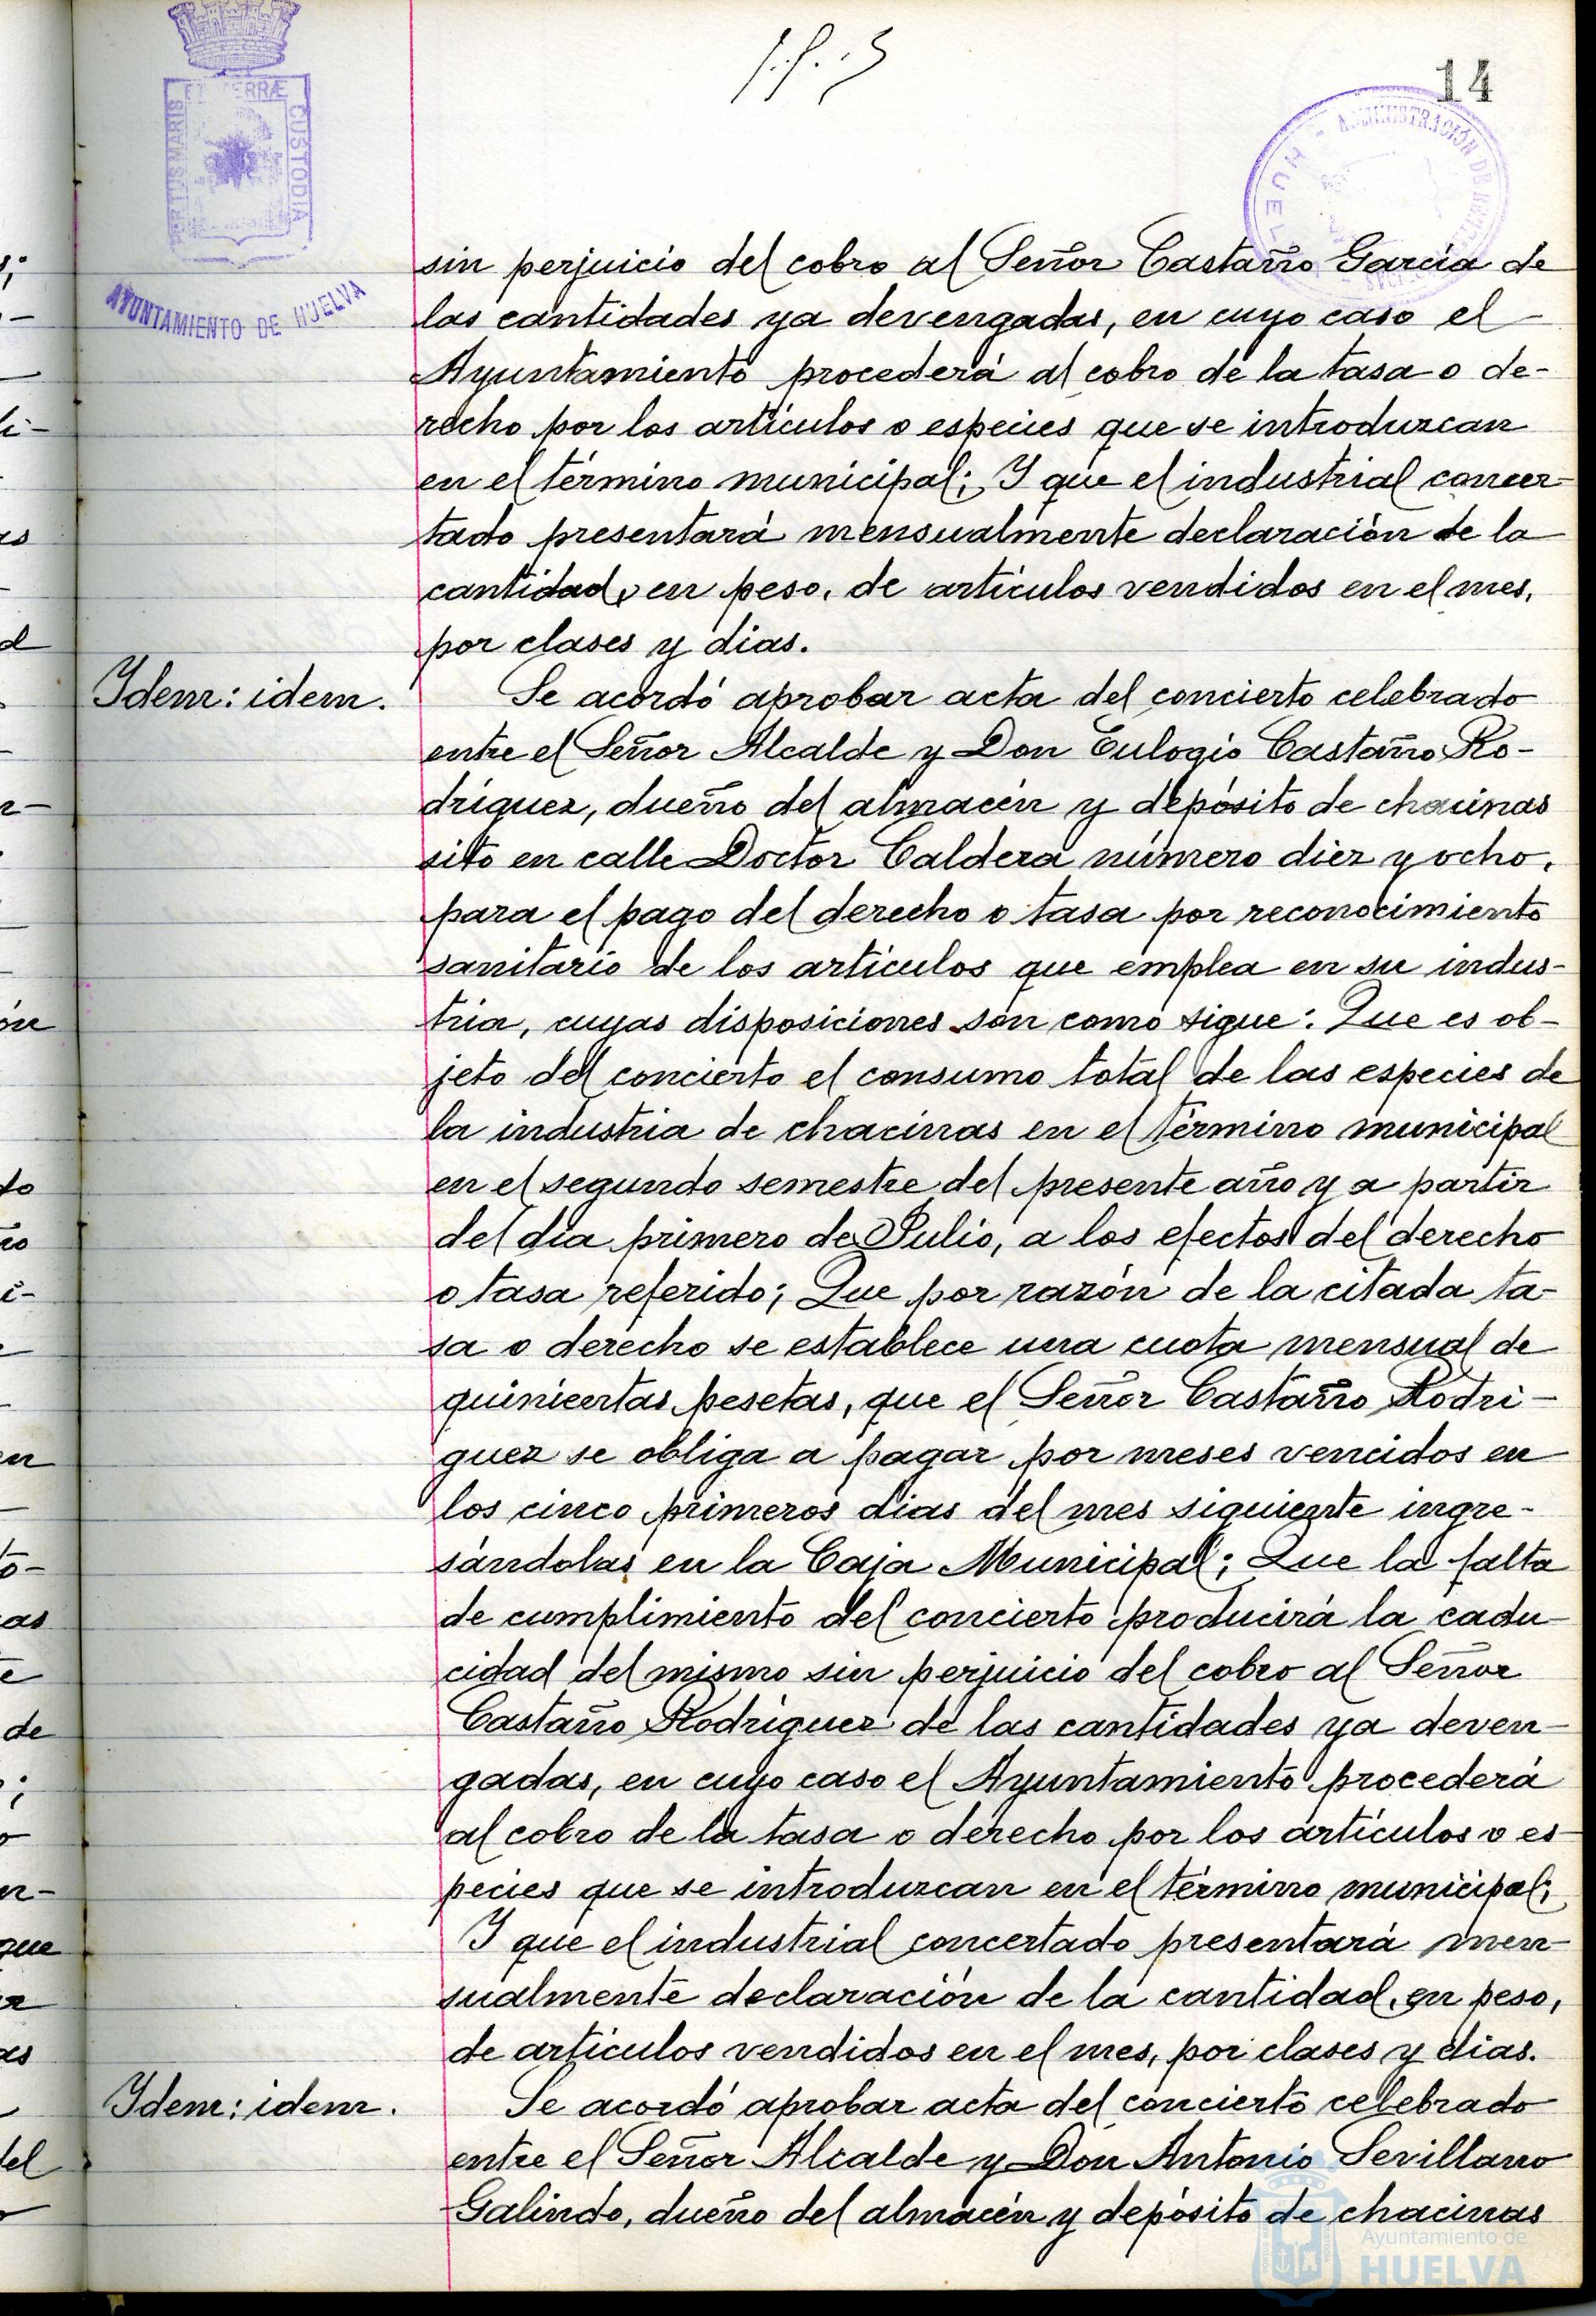 14
PORTUS MARIS
ET TERRÆ
CUSTODIA
AYUNTAMIENTO DE HUELVA
ADMINISTRACIÓN DE
HUEL
sin perjuicio del cobro al Señor Castaño García de
las cantidades ya devengadas, en cuyo caso el
Ayuntamiento procederá al cobro de la tasa o de-
recho por los artículos o especies que se introduzcan
en el término municipal; Y que el industrial concer-
tado presentará mensualmente declaración de la
cantidad, en peso, de artículos vendidos en el mes,
por clases y dias.
Idem: idem.
Se acordó aprobar acta del concierto celebrado
entre el Señor Alcalde y Don Eulogio Castaño Ro-
dríguez, dueño del almacén y depósito de chacinas
sito en calle Doctor Caldera número diez y ocho,
para el pago del derecho o tasa por reconocimiento
sanitario de los artículos que emplea en su indus-
tria, cuyas disposiciones son como sigue: Que es ob-
jeto del concierto el consumo total de las especies de
la industria de chacinas en el término municipal
en el segundo semestre del presente año y a partir
del día primero de Julio, a los efectos del derecho
o tasa referido; Que por razón de la citada ta-
sa o derecho se establece una cuota mensual de
quinientas pesetas, que el Señor Castaño Rodri-
guez se obliga a pagar por meses vencidos en
los cinco primeros dias del mes siguiente ingre-
sándolas en la Caja Municipal; Que la falta
de cumplimiento del concierto producirá la cadu-
cidad del mismo sin perjuicio del cobro al Señor
Castaño Rodríguez de las cantidades ya deven-
gadas, en cuyo caso el Ayuntamiento procederá
al cobro de la tasa o derecho por los artículos o es-
pecies que se introduzcan en el término municipal;
Y que el industrial concertado presentará men-
sualmente declaración de la cantidad, en peso,
de artículos vendidos en el mes, por clases y dias.
Idem: idem.
Se acordó aprobar acta del concierto celebrado
entre el Señor Alcalde y Don Antonio Sevillano
Galindo, dueño del almacén y depósito de chacinas
Ayuntamiento de
HUELVA